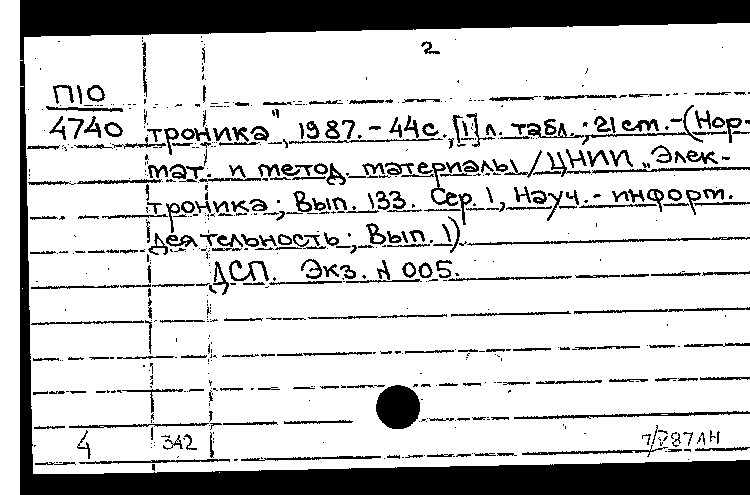 2
П10
4740
троника", 1987.-44с.,[1]л. табл.; 21 см.-(Нор-
мат. и метод. материалы/ЦНИИ „Элек-
троника; Вып. 133. Сер. 1, Науч.- информ.
деятельность; Вып. 1)
ДСП. Экз. N 005.
4 342 7/V87ЛН